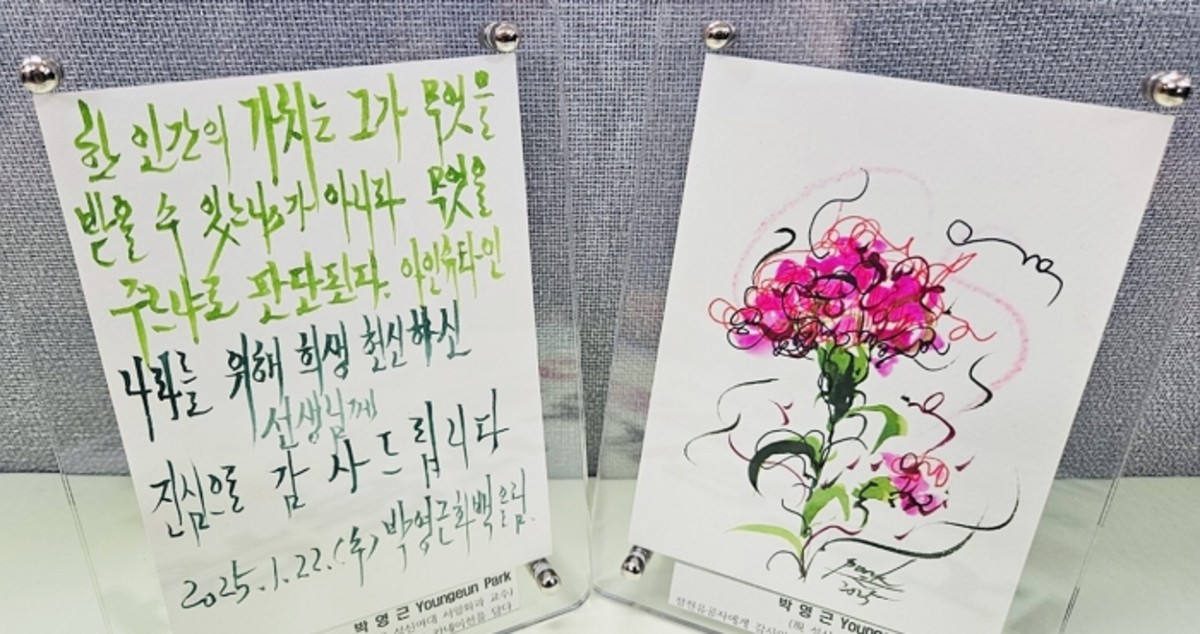 한 인간의 가치는 그가 무엇을
받을 수 있느냐가 아니라 무엇을
주느냐로 판단된다. 아인슈타인
나라를 위해 희생 헌신하신
선생님께
진심으로 감사드립니다
2025.1.22.(수) 박영근화백 올림.
박영근 Youngeun Park
성신여대 서양화과 교수)
카네이션을 담다
Park
2025
박영근 Youn